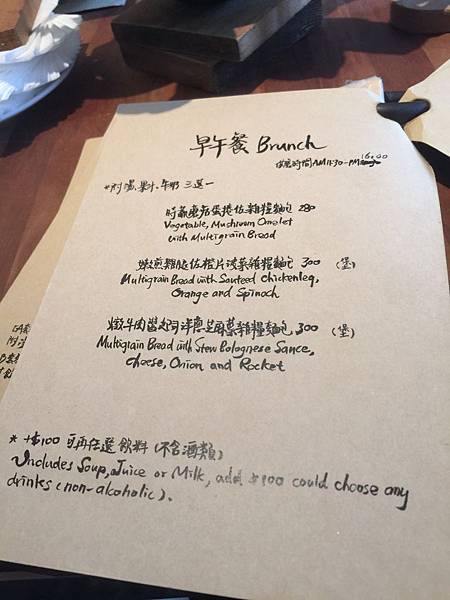 早午餐 Brunch
供應時間AM11:30-PM16:00
*附湯.果汁.牛奶 三選一
時蔬蘑菇蛋捲佐雜糧麵包 280
Vegetable, Mushroom Omelet
with Multigrain Bread
嫩煎雞腿佐橙片菠菜雜糧麵包 300 (堡)
Multigrain Bread with Sauteed Chickenleg,
Orange and Spinach
燉牛肉醬起司洋蔥芝麻葉雜糧麵包 300 (堡)
Multigrain Bread with Stew Bolognese Sauce,
cheese, Onion and Rocket
* +$100 可再任選飲料(不含酒類)
Includes Soup, Juice or Milk, add $100 could choose any
drinks (non-alcoholic).